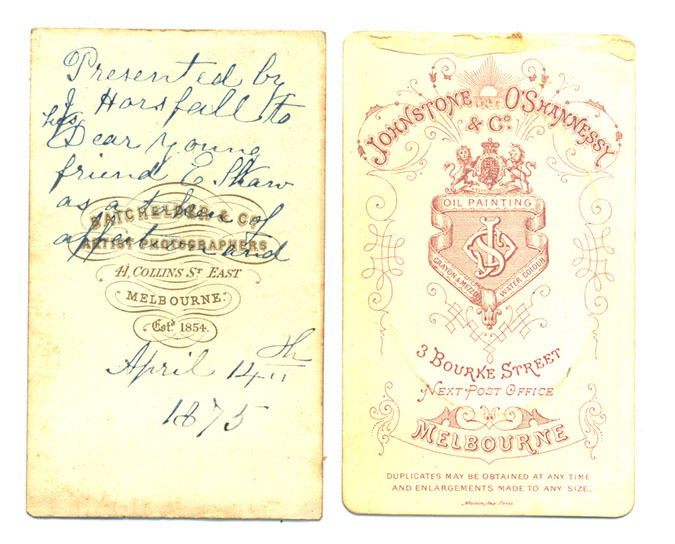 Presented by
J Horsfall to
his
Dear young
friend E Shaw
as a token of
affection and
BATCHELDER & Co
ARTIST PHOTOGRAPHERS
41, COLLINS ST EAST
MELBOURNE.
Estd 1854.
April 14th
1875
JOHNSTONE O'SHANNESSY
& Co.
OIL PAINTING
CRAYON & MEZZO
WATER COLOUR
3 BOURKE STREET
NEXT POST OFFICE
MELBOURNE
DUPLICATES MAY BE OBTAINED AT ANY TIME
AND ENLARGEMENTS MADE TO ANY SIZE.